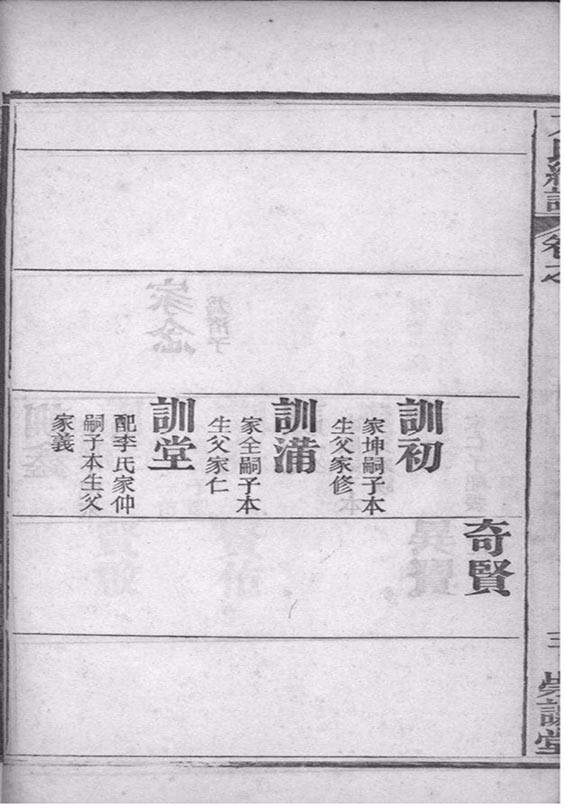 氏
譜
卷之
三
堂
奇賢
訓初
家坤嗣子本
生父家修
訓滿
家全嗣子本
生父家仁
訓堂
配李氏家仲
嗣子本生父
家義